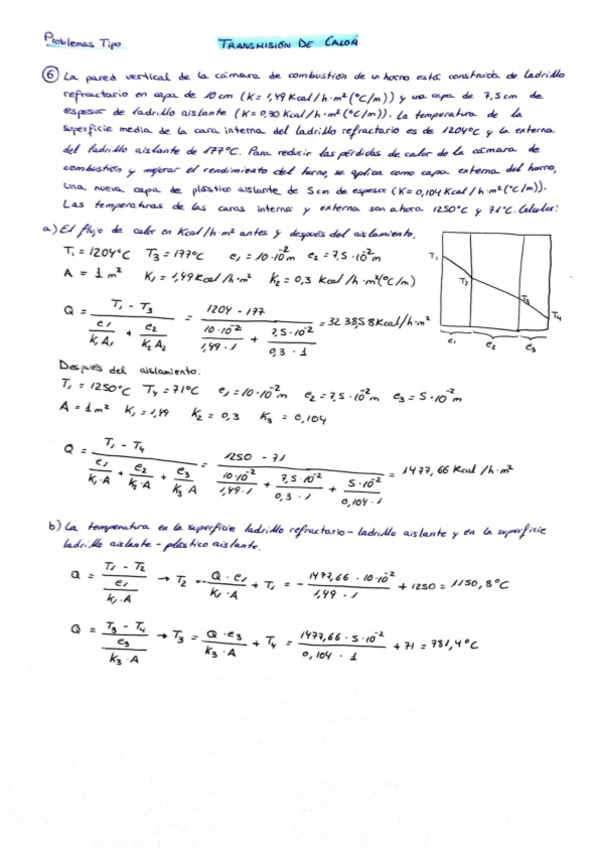 Problemas Tipo
TRANSMISIÓN DE CALOR
⑥ La pared vertical de la cámara de combustión de un horno está construida de ladrillo
refractario en capa de 10 cm (K = 1,49 Kcal/h·m²(°C/m)) y una capa de 7,5 cm de
espesor de ladrillo aislante (K = 0,30 Kcal/h·m²(°C/m)). La temperatura de la
superficie media de la cara interna del ladrillo refractario es de 1204°C y la externa
del ladrillo aislante de 177°C. Para reducir las pérdidas de calor de la cámara de
combustión y mejorar el rendimiento del horno, se aplica como capa externa del horno,
una nueva capa de plástico aislante de 5 cm de espesor (K = 0,104 Kcal/h·m²(°C/m)).
Las temperaturas de las caras interna y externa son ahora 1250°C y 71°C. Calcular:
a) El flujo de calor en Kcal/h·m² antes y después del aislamiento.
T₁ = 1204°C T₃ = 177°C e₁ = 10·10⁻² m e₂ = 7,5·10⁻² m
A = 1 m² K₁ = 1,49 Kcal/h·m² K₂ = 0,3 Kcal/h·m²(°C/m)
T₁
T₂
T₃
T₄
e₁ e₂ e₃
Q = (T₁ - T₃) / (e₁/(K₁A₁) + e₂/(K₂A₂)) = (1204 - 177) / (10·10⁻²/(1,49·1) + 7,5·10⁻²/(0,3·1)) = 3238,58 Kcal/h·m²
Después del aislamiento:
T₁ = 1250°C T₄ = 71°C e₁ = 10·10⁻² m e₂ = 7,5·10⁻² m e₃ = 5·10⁻² m
A = 1 m² K₁ = 1,49 K₂ = 0,3 K₃ = 0,104
Q = (T₁ - T₄) / (e₁/(K₁·A) + e₂/(K₂·A) + e₃/(K₃·A)) = (1250 - 71) / (10·10⁻²/(1,49·1) + 7,5·10⁻²/(0,3·1) + 5·10⁻²/(0,104·1)) = 1477,66 Kcal/h·m²
b) La temperatura en la superficie ladrillo refractario - ladrillo aislante y en la superficie
ladrillo aislante - plástico aislante.
Q = (T₁ - T₂) / (e₁/(K₁·A)) → T₂ = -(Q·e₁)/(K₁·A) + T₁ = -(1477,66·10·10⁻²)/(1,49·1) + 1250 = 1150,8°C
Q = (T₃ - T₄) / (e₃/(K₃·A)) → T₃ = (Q·e₃)/(K₃·A) + T₄ = (1477,66·5·10⁻²)/(0,104·1) + 71 = 781,4°C